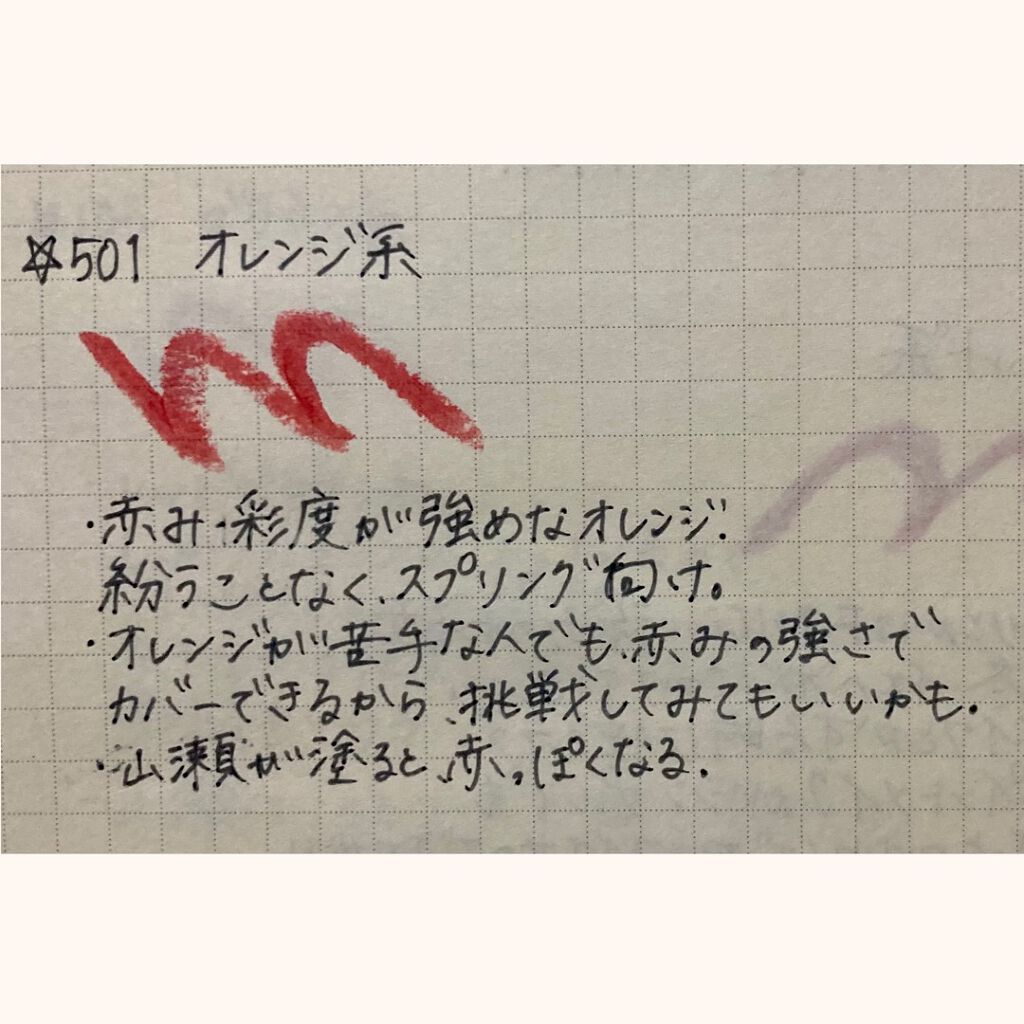 ☆501 オレンジ系
・赤み・彩度が強めなオレンジ.
紛うことなく、スプリング向け。
・オレンジが苦手な人でも、赤みの強さで
カバーできるから、挑戦してみてもいいかも.
・山瀬が塗ると、赤っぽくなる.